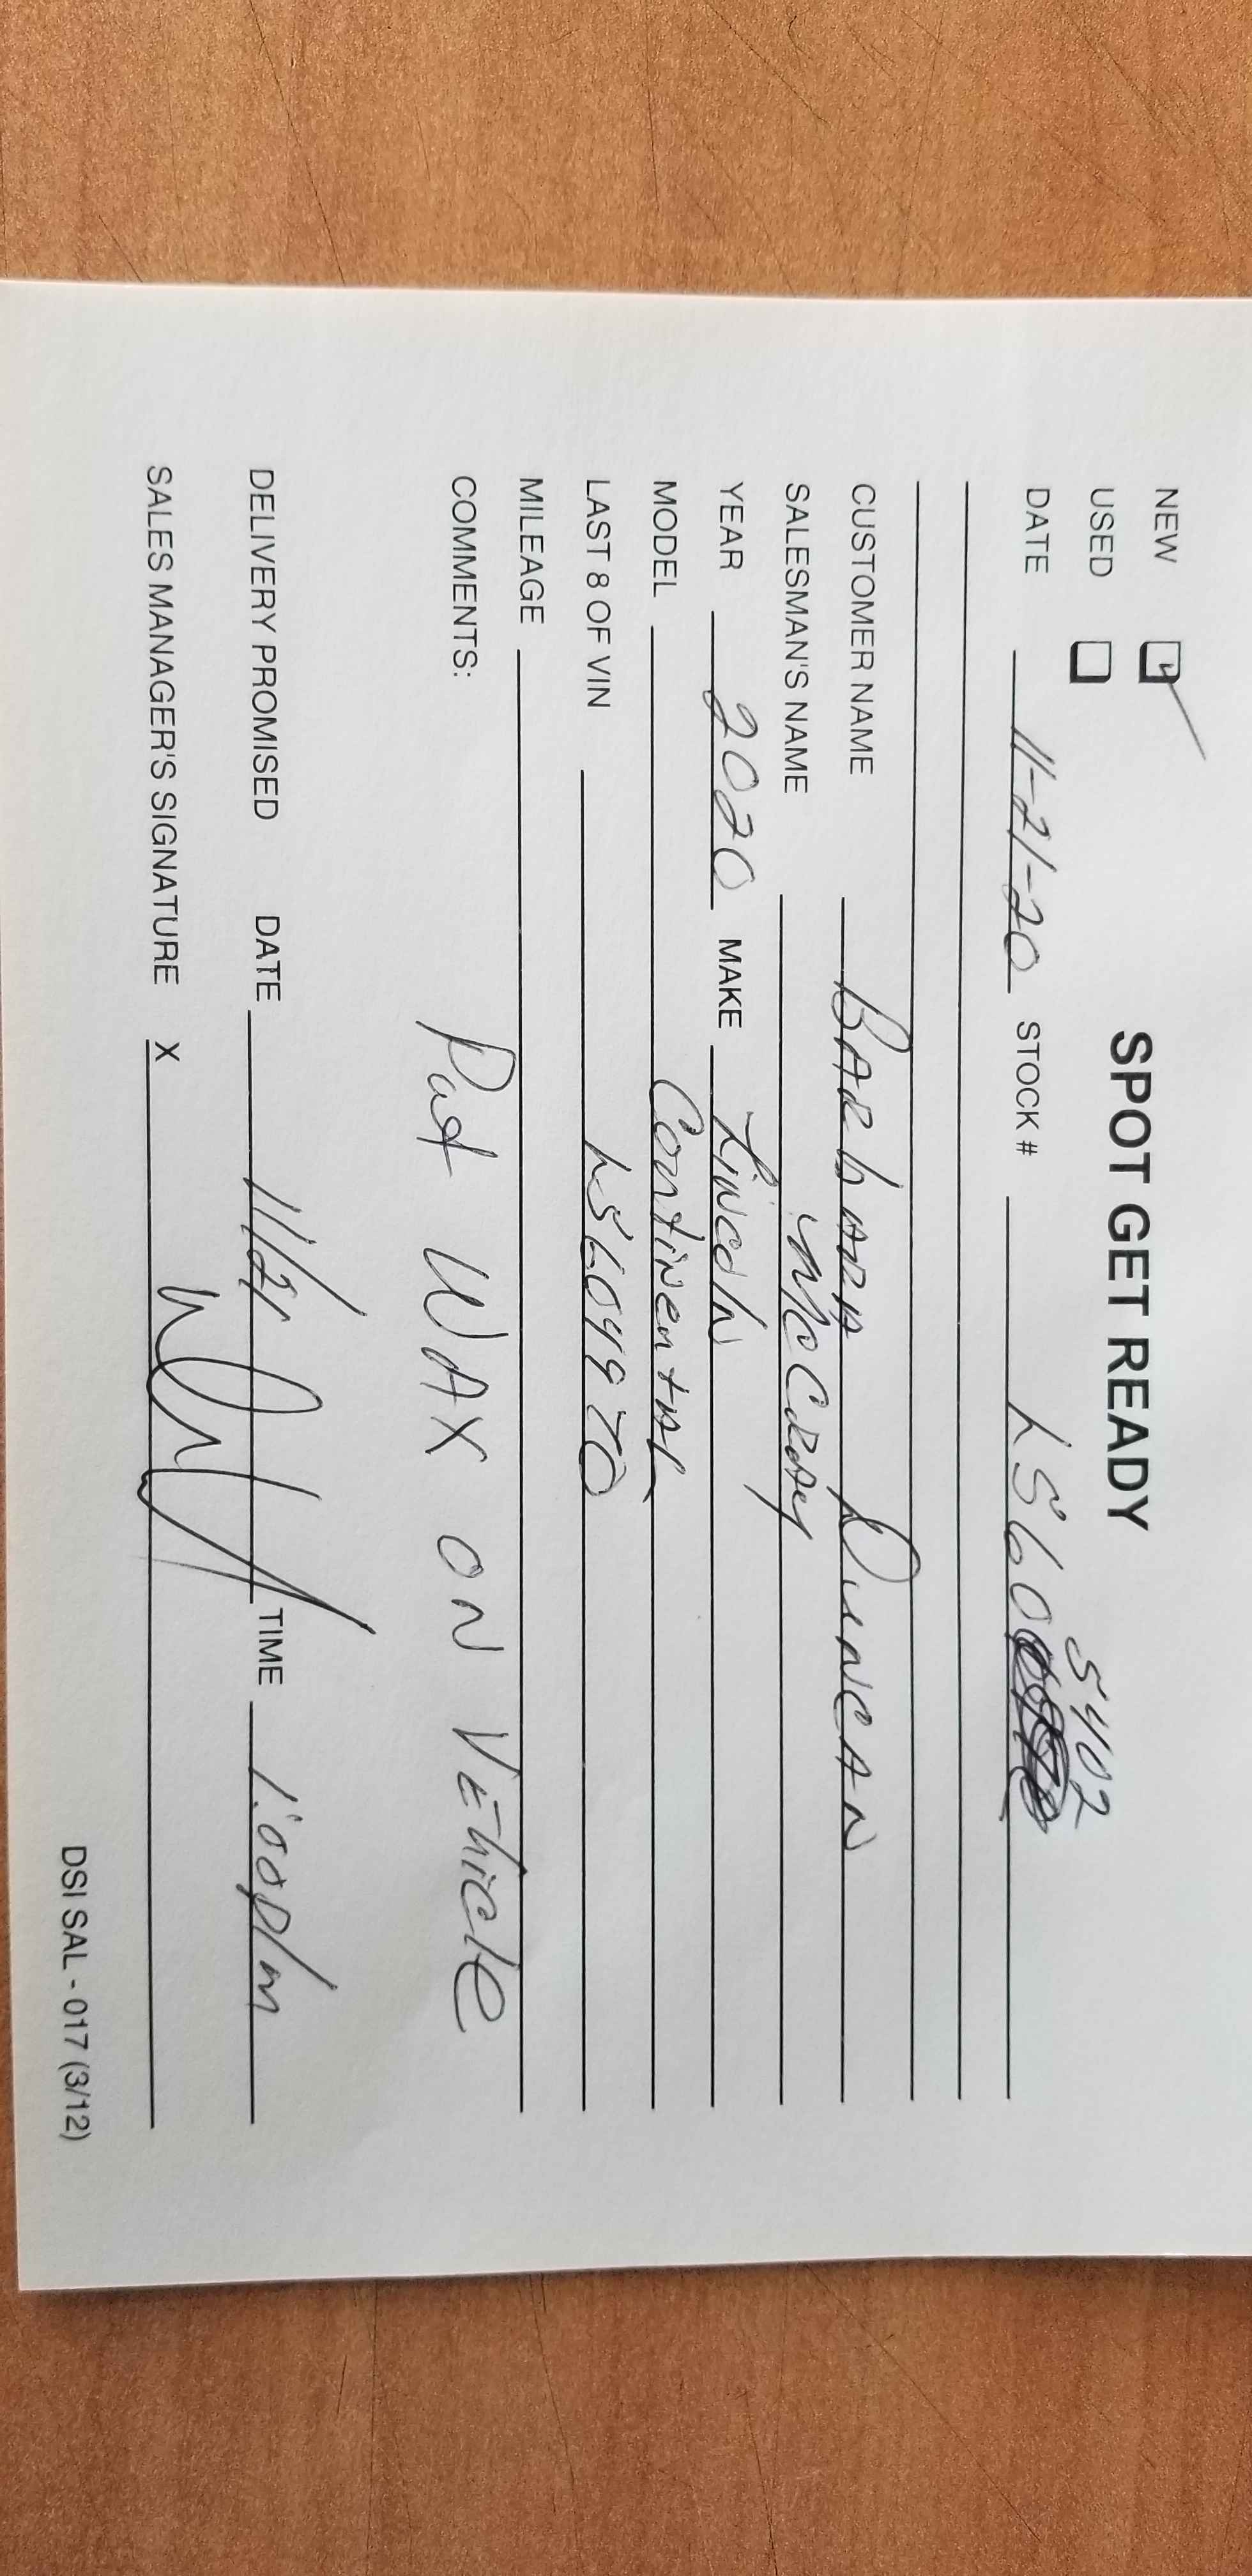 SPOT GET READY
NEW
USED
5402
DATE 11-21-20 STOCK # L560
CUSTOMER NAME BARbARA DUNCAN
SALESMAN'S NAME McCRAY
YEAR 2020 MAKE Lincoln
MODEL ContinentAL
LAST 8 OF VIN L5604970
MILEAGE
COMMENTS: Put WAX ON VEhiclE
DELIVERY PROMISED DATE 11/21 TIME 1:00pm
SALES MANAGER'S SIGNATURE X
DSI SAL - 017 (3/12)